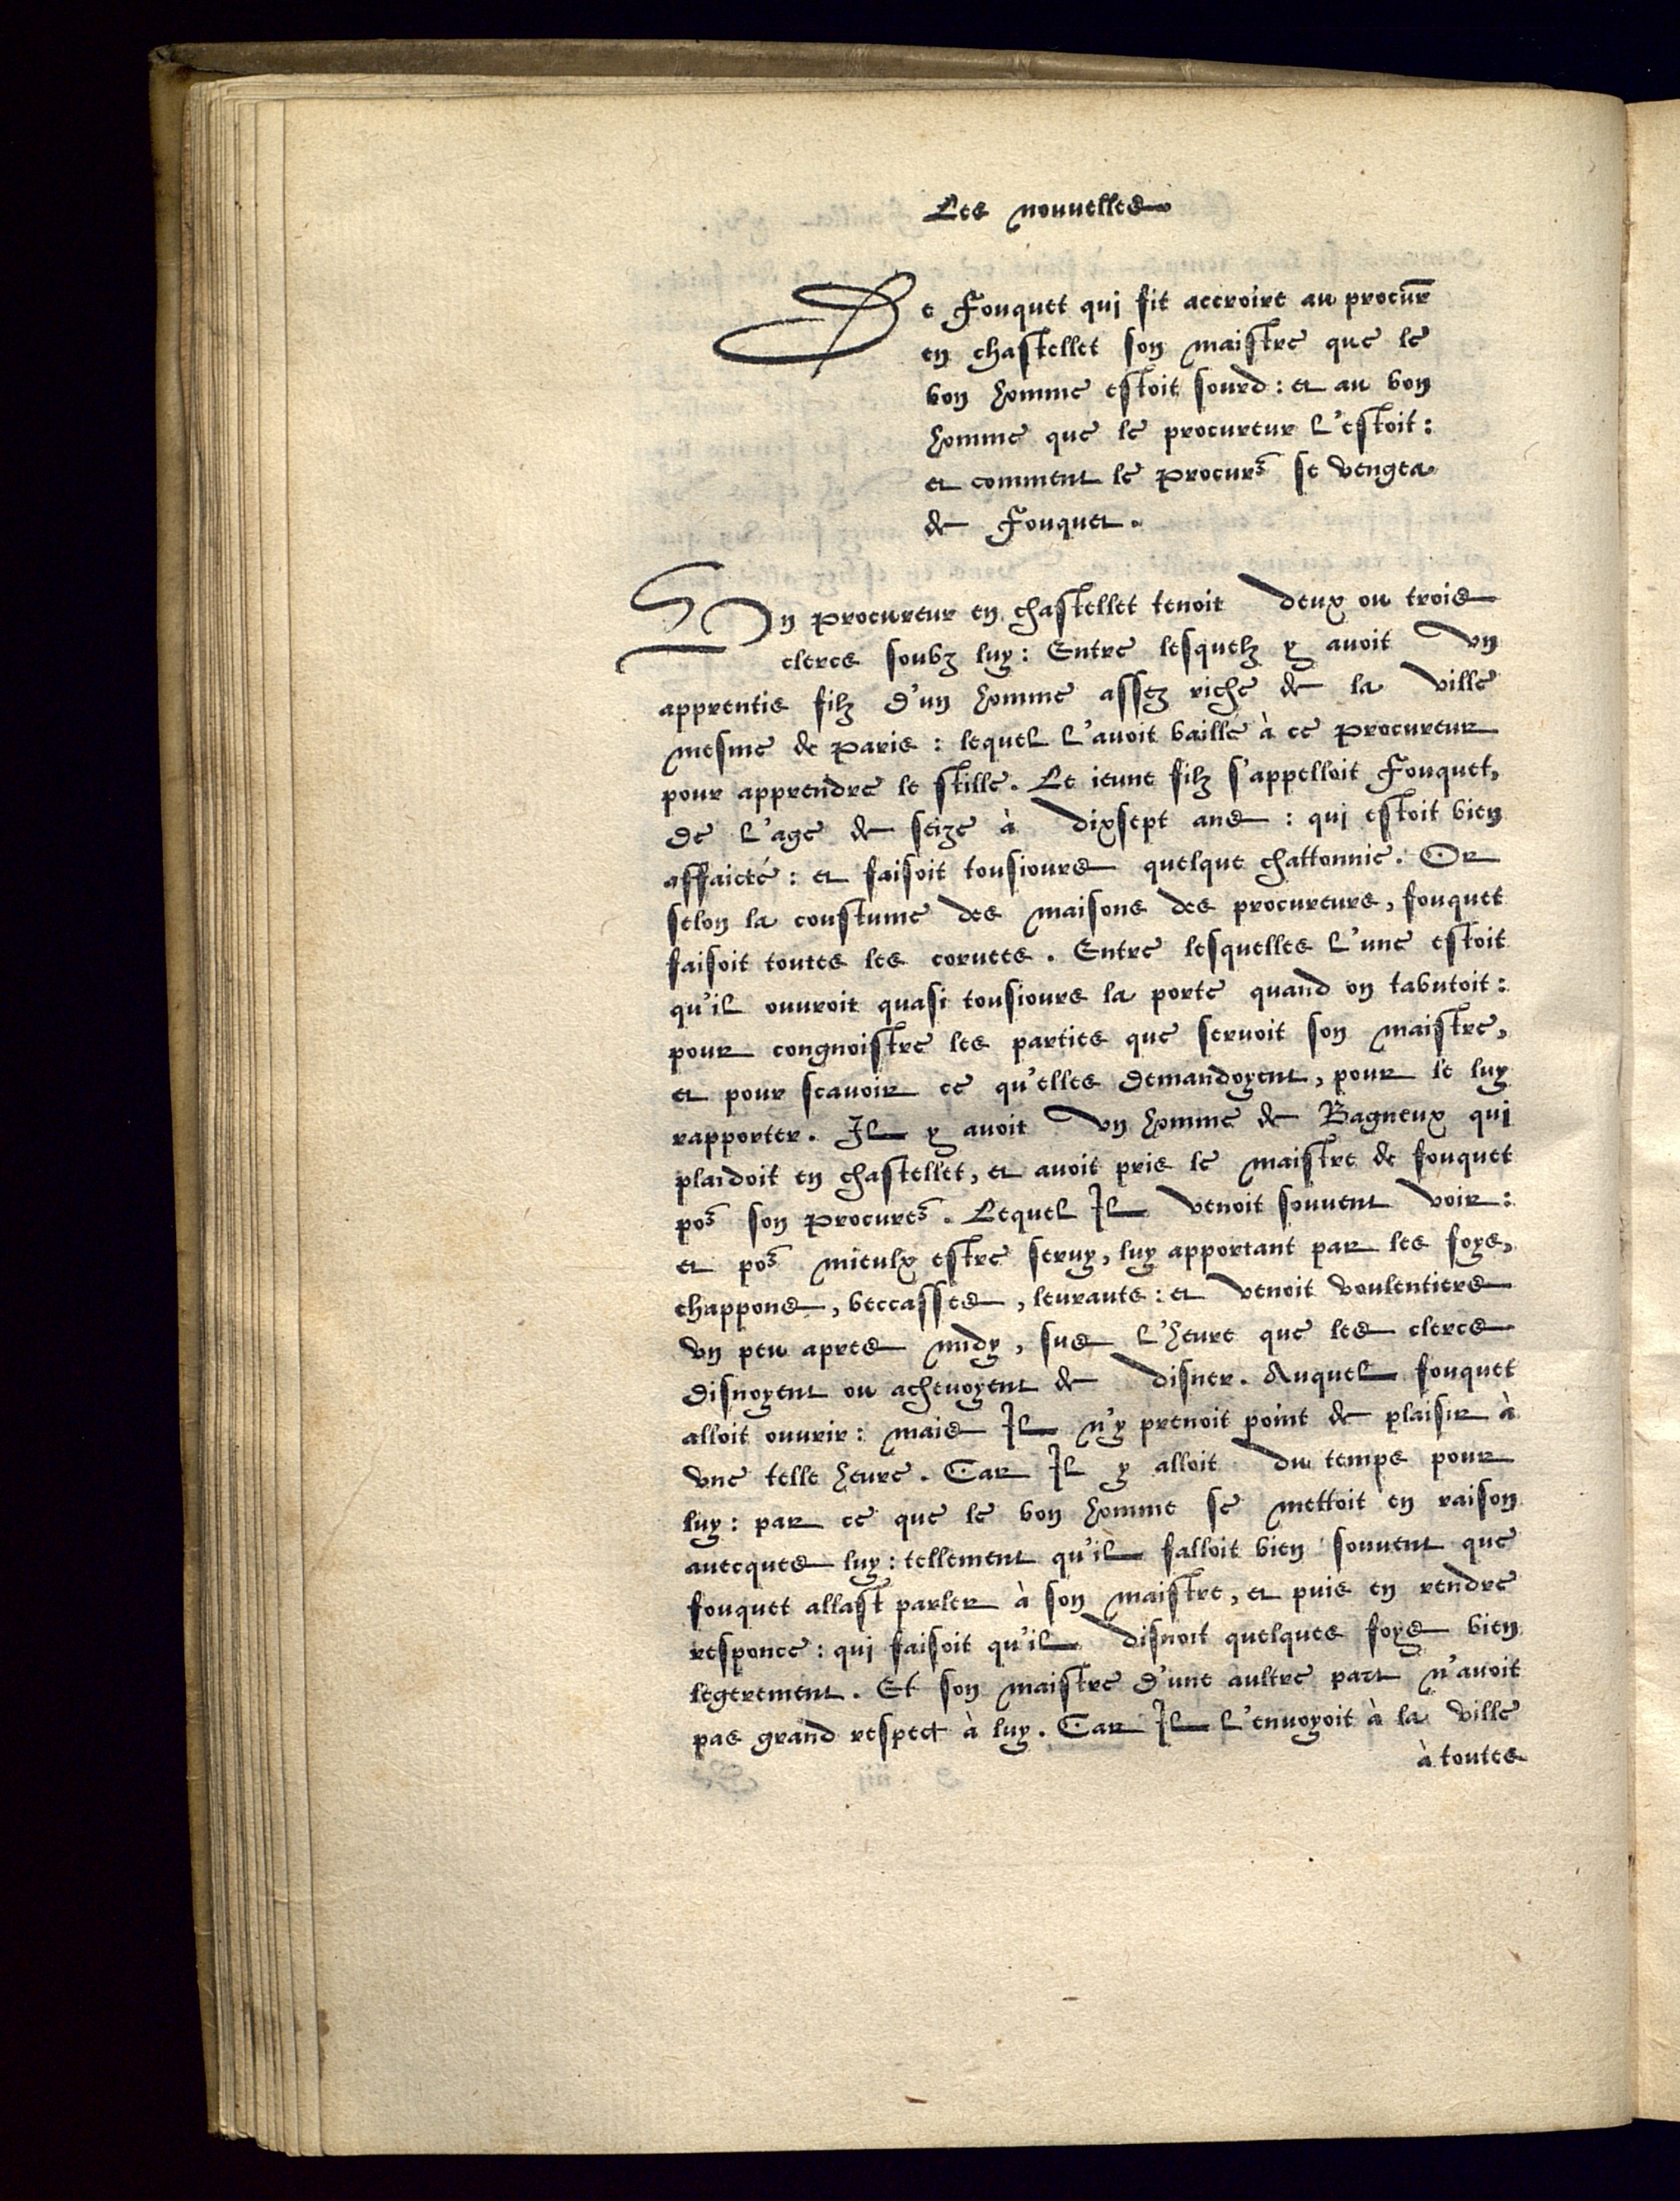 Les nouuelles
De Fouquet qui fit accroire au procur̄
en chastellet son maistre que le
bon homme estoit sourd: et au bon
homme que le procureur l'estoit:
et comment le procurr̃ se vengea
de Fouquet.
Un procureur en chastellet tenoit deux ou trois
clercs soubz luy: Entre lesquelz y auoit vn
apprentis filz d'un homme assez riche de la ville
mesme de Paris: lequel l'auoit baillé à ce procureur
pour apprendre le stille. Le ieune filz s'appelloit Fouquet,
de l'age de seize à dixsept ans: qui estoit bien
affaicté: et faisoit tousiours quelque chattonnie. Or
selon la coustume des maisons des procureurs, fouquet
faisoit toutes les coruees. Entre lesquelles l'une estoit
qu'il ouuroit quasi tousiours la porte quand on tabutoit:
pour congnoistre les parties que seruoit son maistre,
et pour scauoir ce qu'elles demandoyent, pour le luy
rapporter. Il y auoit vn homme de Bagneux qui
plaidoit en chastellet, et auoit pris le maistre de fouquet
por̃ son procurer̃. Lequel Il venoit souuent voir:
et por̃ mieulx estre seruy, luy apportant par les foys,
chappons, beccasses, leurauts: et venoit voulentiers
vn peu apres midy, sus l'heure que les clercs
disnoyent ou acheuoyent de disner. Auquel fouquet
alloit ouurir: mais Il n'y prenoit point de plaisir à
vne telle heure. Car Il y alloit du temps pour
luy: par ce que le bon homme se mettoit en raison
auecques luy: tellement qu'il falloit bien souuent que
fouquet allast parler à son maistre, et puis en rendre
responce: qui faisoit qu'il disnoit quelques foys bien
legerement. Et son maistre d'une aultre part n'auoit
pas grand respect à luy. Car Il l'enuoyoit à la ville
à toutes